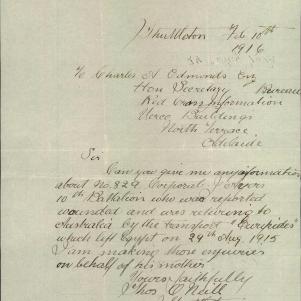 Thulloton Feb 10th
1916
To Charles A Edmonds Esq
Hon Secretary Bureau
Red Cross Information
Verco Buildings
North Terrace
Adelaide
Sir
Can you give me any information
about No. 829 Corporal J
10th Battalion who was reported
wounded and was returning to
Australia by the transport "Euripides"
which left Egypt on 29th Aug 1915
I am making these enquiries
on behalf of his mother
Yours faithfully
Thos O'Neill